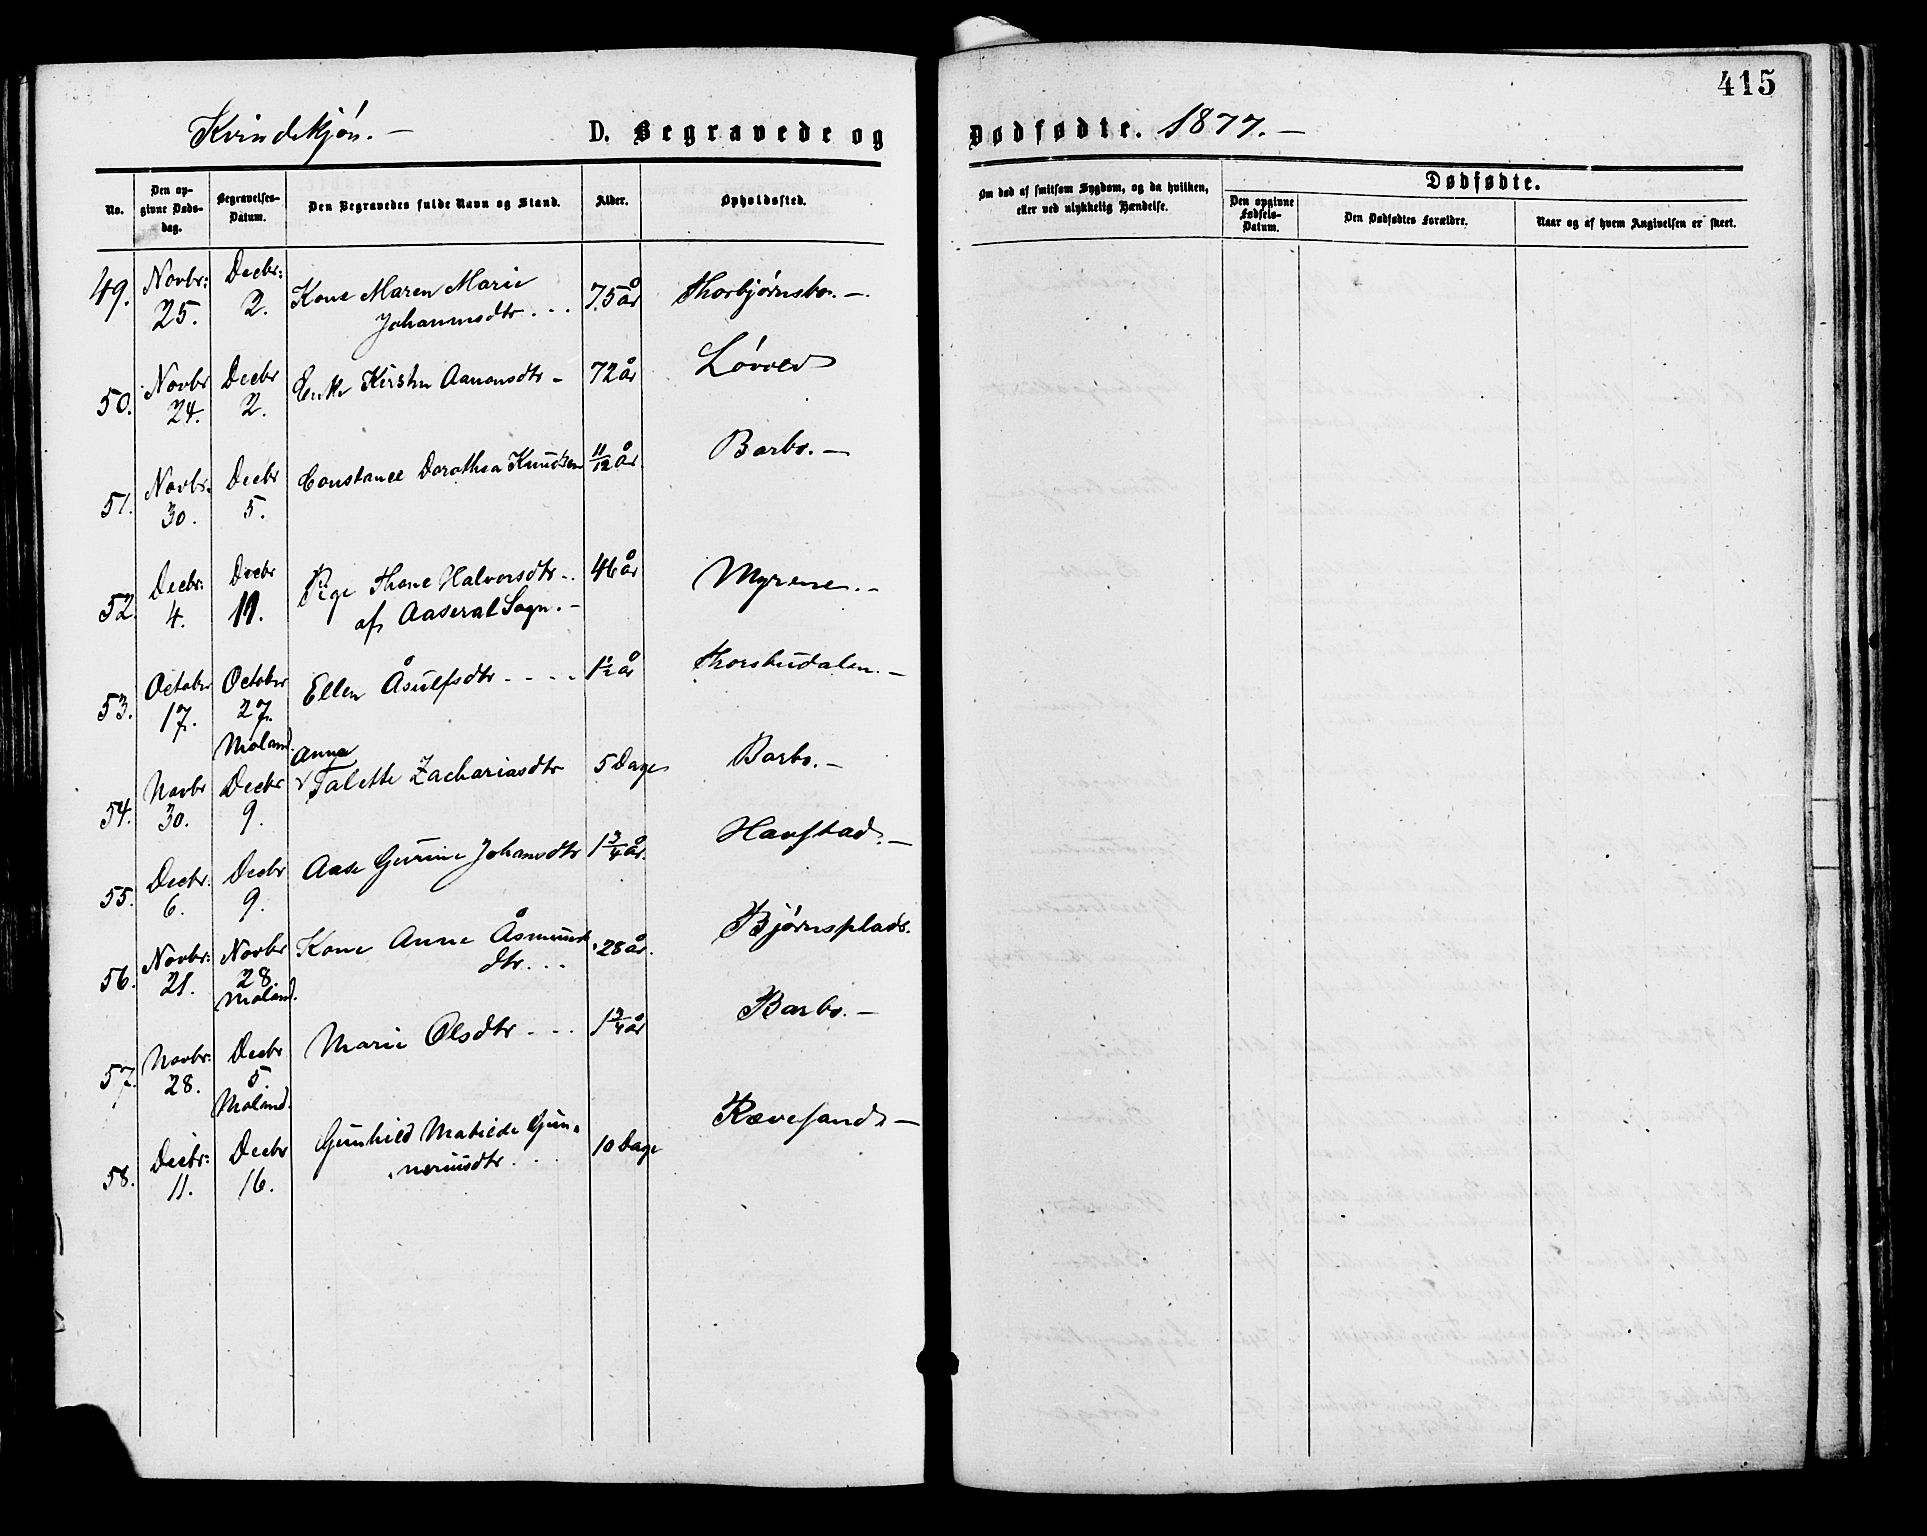 415
Kvindekjøn. —
D. Begravede og Dødfødte. 1877. —
No.
Den opgivne Dødsdag.
Begravelses-Datum.
Den Begravedes fulde Navn og Stand.
Alder.
Opholdssted.
Om død af smitsom Sygdom, og da hvilken, eller ved ulykkelig Hændelse.
Dødfødte.
Den opgivne Fødsels-Datum.
Den Dødfødtes Forældre.
Naar og af hvem Angivelsen er skeet.
49. Novbr: 25. Decbr: 2. Kone Maren Marie 75 år Thorbjørnsbo. —
Johannesdtr . . .
50. Novbr 24. Decbr 2. Enke Kirsten Aanonsdtr - 72 år Løvved
51. Novbr. 30. Decbr 5. Constance Dorothea Knudsen 11/12 år Barbo. —
52. Decbr. 4. Decbr 11. Pige Thone Halvorsdtr . . 46 år Myrene. -
af Aaseral Sogn. -
53. October 17. October 27. Moland. Ellen Åsulfsdtr - - - - 1½ år Thorsbudalen. -
54. Novbr 30. Decbr 9. Anna
Talette Zachariasdtr 5 Dage Barbo. -
55. Decbr. 6. Decbr 9. Aase Gurine Johansdtr 1¾ år. Havstad. —
56. Novbr: 21. Novbr 28. Moland. Kone Anne Åsmunds 28 år. Bjørnsplads.
dtr. . .
57. Novbr: 28. Decbr 5. Moland. Marie Olsdtr - - - 1¾ år Barbo. —
58. Decbr: 11. Decbr 16. Gunhild Matilde Gun- 10 Dage Rævesand. —
neriusdtr . . .